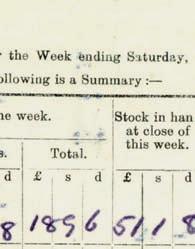 r the Week ending Saturday,
ollowing is a Summary:—
he week.
Stock in han
at close of
this week.
s.
Total.
d £ s d £ s d
8 189 6 51 1 8